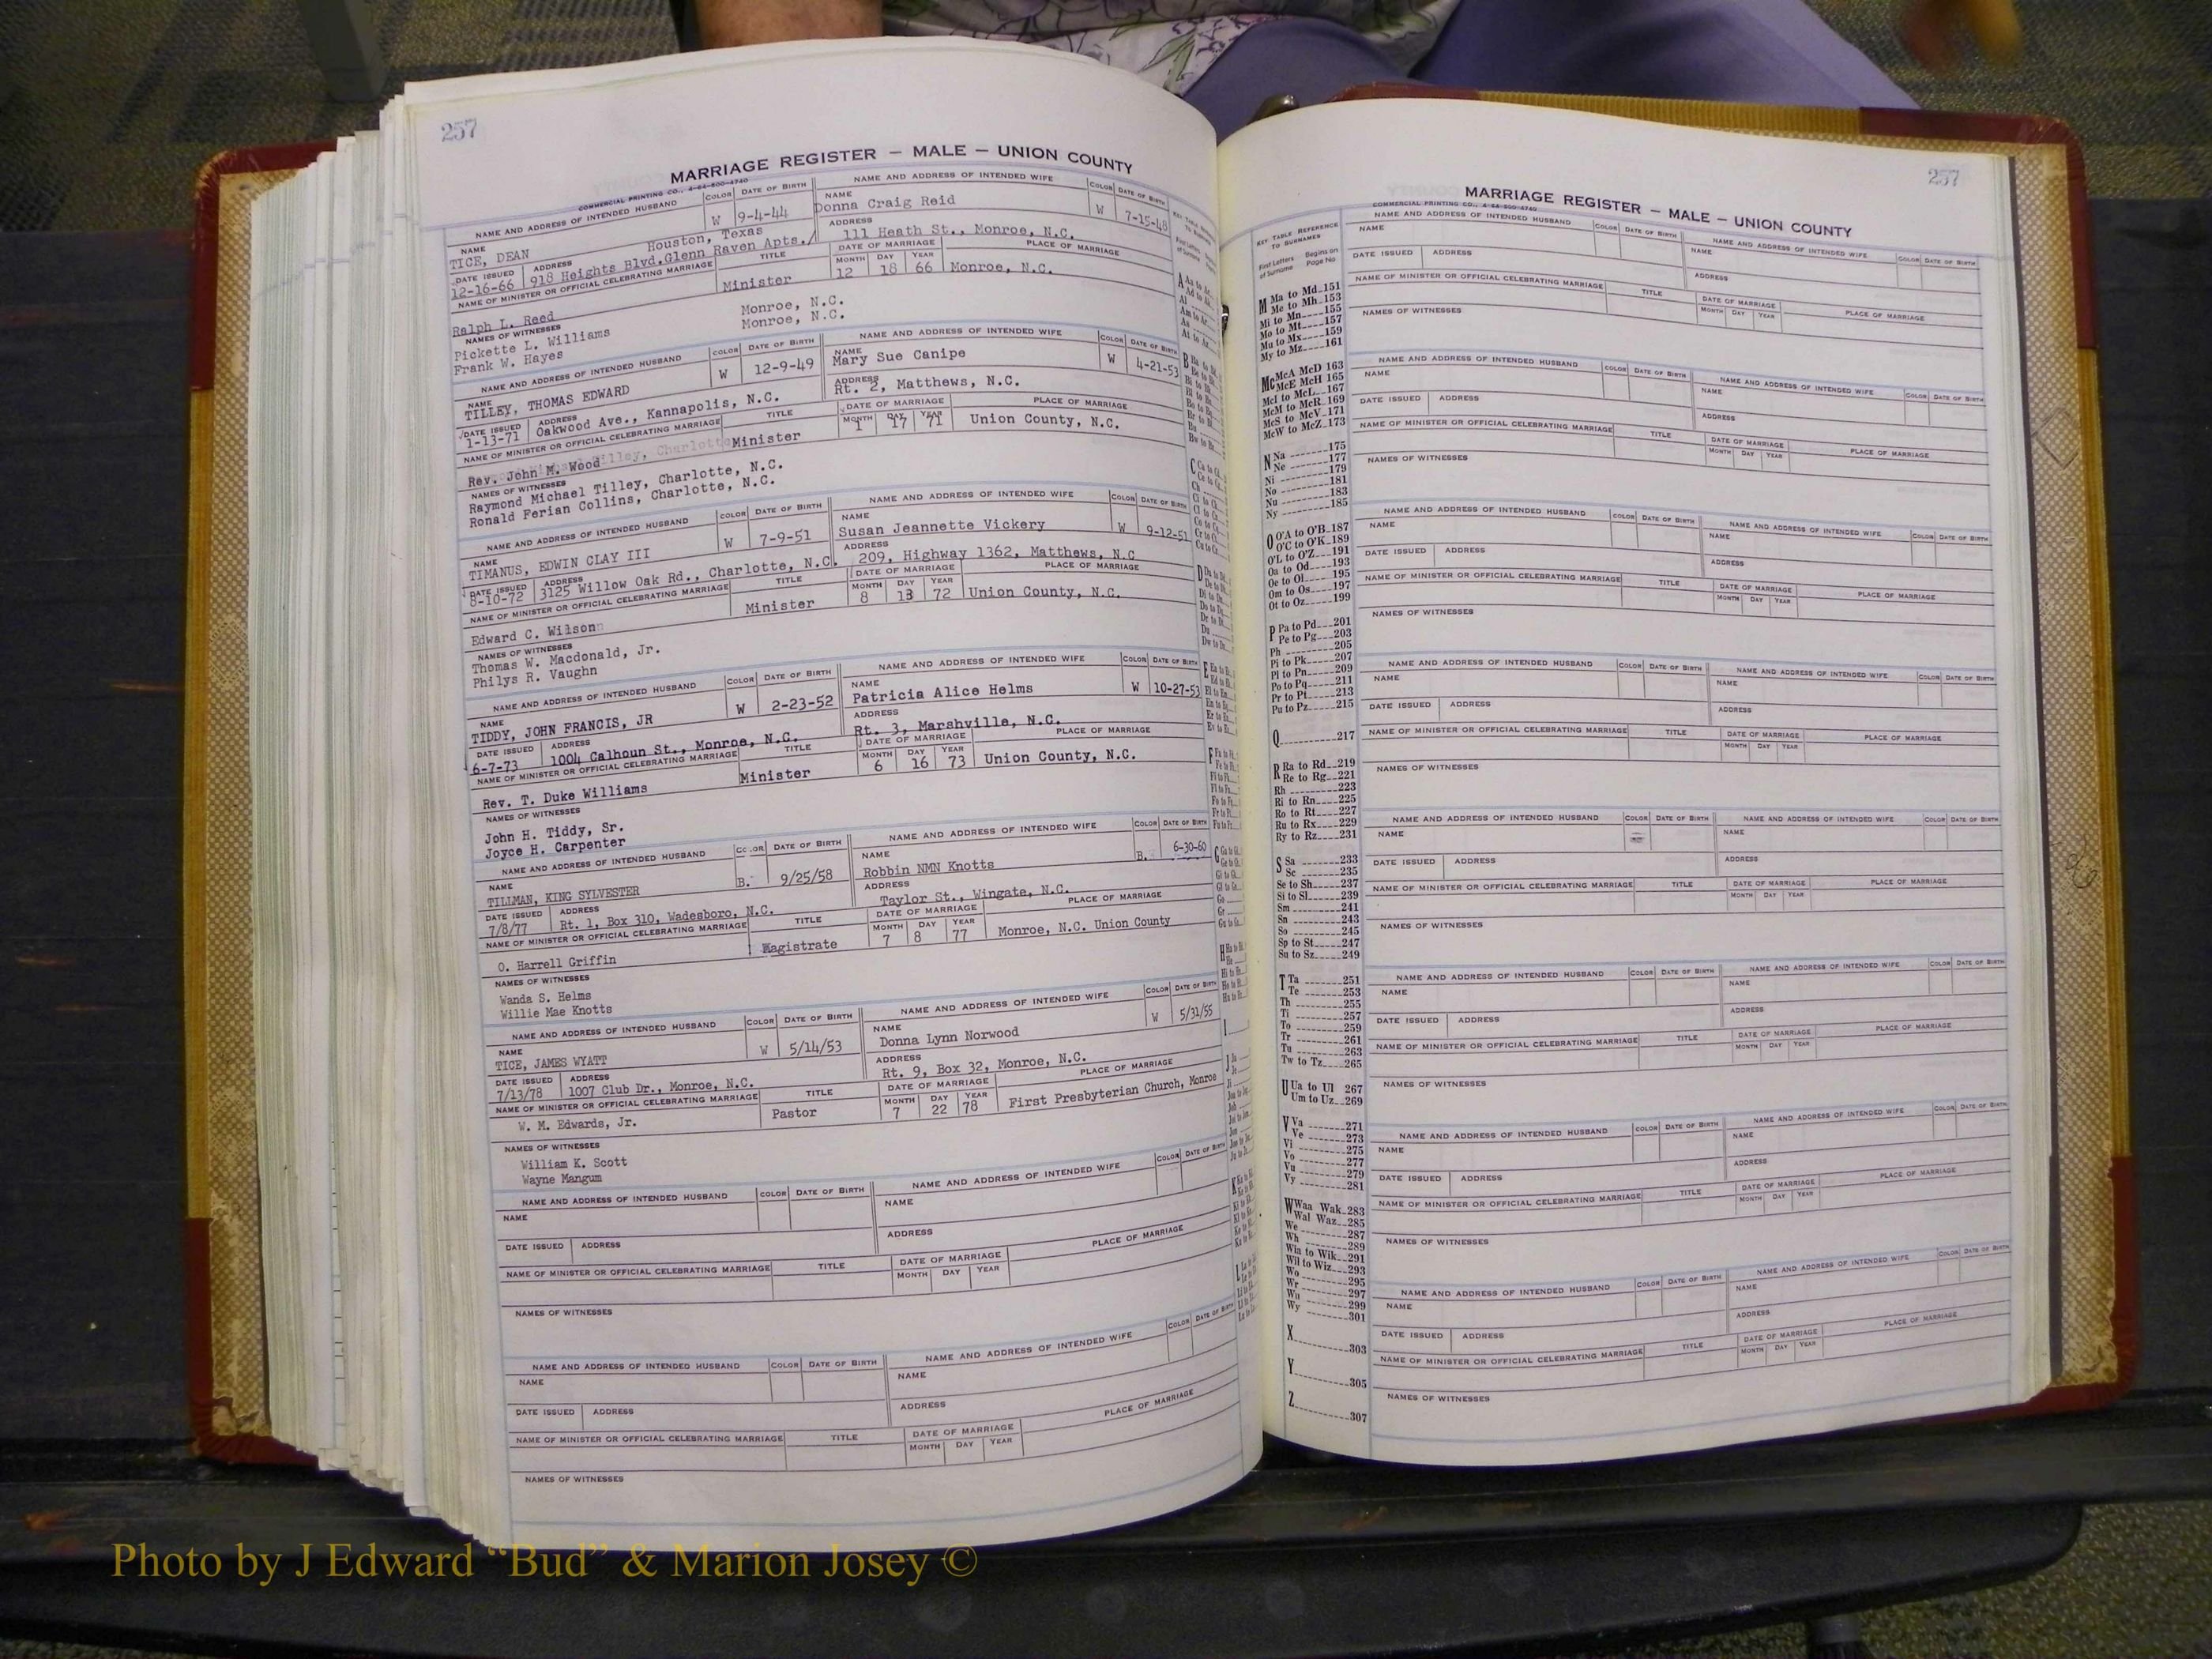 257
MARRIAGE REGISTER — MALE — UNION COUNTY
COMMERCIAL PRINTING CO., 4-64-500-4740
NAME AND ADDRESS OF INTENDED HUSBAND COLOR DATE OF BIRTH NAME AND ADDRESS OF INTENDED WIFE COLOR DATE OF BIRTH
NAME TICE, DEAN W 9-4-44 NAME Donna Craig Reid W 7-15-48
DATE ISSUED 12-16-66 ADDRESS Houston, Texas 918 Heights Blvd.Glenn Raven Apts./ ADDRESS 111 Heath St., Monroe, N.C.
NAME OF MINISTER OR OFFICIAL CELEBRATING MARRIAGE TITLE DATE OF MARRIAGE PLACE OF MARRIAGE
MONTH DAY YEAR
Ralph L. Reed Minister 12 18 66 Monroe, N.C.
NAMES OF WITNESSES
Pickette L. Williams Monroe, N.C.
Frank W. Hayes Monroe, N.C.
NAME AND ADDRESS OF INTENDED HUSBAND COLOR DATE OF BIRTH NAME AND ADDRESS OF INTENDED WIFE COLOR DATE OF BIRTH
NAME TILLEY, THOMAS EDWARD W 12-9-49 NAME Mary Sue Canipe W 4-21-53
DATE ISSUED 1-13-71 ADDRESS Oakwood Ave., Kannapolis, N.C. ADDRESS Rt. 2, Matthews, N.C.
NAME OF MINISTER OR OFFICIAL CELEBRATING MARRIAGE TITLE DATE OF MARRIAGE PLACE OF MARRIAGE
MONTH DAY YEAR
Rev. John M. Wood Minister 1 17 71 Union County, N.C.
NAMES OF WITNESSES
Raymond Michael Tilley, Charlotte, N.C.
Ronald Ferian Collins, Charlotte, N.C.
NAME AND ADDRESS OF INTENDED HUSBAND COLOR DATE OF BIRTH NAME AND ADDRESS OF INTENDED WIFE COLOR DATE OF BIRTH
NAME TIMANUS, EDWIN CLAY III W 7-9-51 NAME Susan Jeannette Vickery W 9-12-51
DATE ISSUED 8-10-72 ADDRESS 3125 Willow Oak Rd., Charlotte, N.C. ADDRESS 209, Highway 1362, Matthews, N.C
NAME OF MINISTER OR OFFICIAL CELEBRATING MARRIAGE TITLE DATE OF MARRIAGE PLACE OF MARRIAGE
MONTH DAY YEAR
Edward C. Wilson Minister 8 13 72 Union County, N.C.
NAMES OF WITNESSES
Thomas W. Macdonald, Jr.
Philys R. Vaughn
NAME AND ADDRESS OF INTENDED HUSBAND COLOR DATE OF BIRTH NAME AND ADDRESS OF INTENDED WIFE COLOR DATE OF BIRTH
NAME TIDDY, JOHN FRANCIS, JR W 2-23-52 NAME Patricia Alice Helms W 10-27-53
DATE ISSUED 6-7-73 ADDRESS 1004 Calhoun St., Monroe, N.C. ADDRESS Rt. 3, Marshville, N.C.
NAME OF MINISTER OR OFFICIAL CELEBRATING MARRIAGE TITLE DATE OF MARRIAGE PLACE OF MARRIAGE
MONTH DAY YEAR
Rev. T. Duke Williams Minister 6 16 73 Union County, N.C.
NAMES OF WITNESSES
John H. Tiddy, Sr.
Joyce H. Carpenter
NAME AND ADDRESS OF INTENDED HUSBAND COLOR DATE OF BIRTH NAME AND ADDRESS OF INTENDED WIFE COLOR DATE OF BIRTH
NAME TILLMAN, KING SYLVESTER B. 9/25/58 NAME Robbin NMN Knotts B. 6-30-60
DATE ISSUED 7/8/77 ADDRESS Rt. 1, Box 310, Wadesboro, N.C. ADDRESS Taylor St., Wingate, N.C.
NAME OF MINISTER OR OFFICIAL CELEBRATING MARRIAGE TITLE DATE OF MARRIAGE PLACE OF MARRIAGE
MONTH DAY YEAR
O. Harrell Griffin Magistrate 7 8 77 Monroe, N.C. Union County
NAMES OF WITNESSES
Wanda S. Helms
Willie Mae Knotts
NAME AND ADDRESS OF INTENDED HUSBAND COLOR DATE OF BIRTH NAME AND ADDRESS OF INTENDED WIFE COLOR DATE OF BIRTH
NAME TICE, JAMES WYATT W 5/14/53 NAME Donna Lynn Norwood W 5/31/55
DATE ISSUED 7/13/78 ADDRESS 1007 Club Dr., Monroe, N.C. ADDRESS Rt. 9, Box 32, Monroe, N.C.
NAME OF MINISTER OR OFFICIAL CELEBRATING MARRIAGE TITLE DATE OF MARRIAGE PLACE OF MARRIAGE
MONTH DAY YEAR
W. M. Edwards, Jr. Pastor 7 22 78 First Presbyterian Church, Monroe
NAMES OF WITNESSES
William K. Scott
Wayne Mangum
NAME AND ADDRESS OF INTENDED HUSBAND COLOR DATE OF BIRTH NAME AND ADDRESS OF INTENDED WIFE COLOR DATE OF BIRTH
NAME NAME
DATE ISSUED ADDRESS ADDRESS
NAME OF MINISTER OR OFFICIAL CELEBRATING MARRIAGE TITLE DATE OF MARRIAGE PLACE OF MARRIAGE
MONTH DAY YEAR
NAMES OF WITNESSES
NAME AND ADDRESS OF INTENDED HUSBAND COLOR DATE OF BIRTH NAME AND ADDRESS OF INTENDED WIFE COLOR DATE OF BIRTH
NAME NAME
DATE ISSUED ADDRESS ADDRESS
NAME OF MINISTER OR OFFICIAL CELEBRATING MARRIAGE TITLE DATE OF MARRIAGE PLACE OF MARRIAGE
MONTH DAY YEAR
NAMES OF WITNESSES
257
MARRIAGE REGISTER — MALE — UNION COUNTY
COMMERCIAL PRINTING CO., 4-64-500-4740
KEY TABLE REFERENCE
TO SURNAMES
First Letters of Surname Begins on Page No
M Ma to Md 151
Me to Mh 153
Mi to Mn 155
Mo to Mt 157
Mu to Mx 159
My to Mz 161
Mc McA McD 163
McE McH 165
McI to McL 167
McM to McR 169
McS to McV 171
McW to McZ 173
N Na 175
Ne 177
Ni 179
No 181
Nu 183
Ny 185
O O'A to O'B 187
O'C to O'K 189
O'L to O'Z 191
Oa to Od 193
Oe to Ol 195
Om to Os 197
Ot to Oz 199
P Pa to Pd 201
Pe to Pg 203
Ph 205
Pi to Pk 207
Pl to Pn 209
Po to Pq 211
Pr to Pt 213
Pu to Pz 215
Q 217
R Ra to Rd 219
Re to Rg 221
Rh 223
Ri to Rn 225
Ro to Rt 227
Ru to Rx 229
Ry to Rz 231
S Sa 233
Sc 235
Se to Sh 237
Si to Sl 239
Sm 241
Sn 243
So 245
Sp to St 247
Su to Sz 249
T Ta 251
Te 253
Th 255
Ti 257
To 259
Tr 261
Tu 263
Tw to Tz 265
U Ua to Ul 267
Um to Uz 269
V Va 271
Ve 273
Vi 275
Vo 277
Vu 279
Vy 281
W Waa Wak 283
Wal Waz 285
We 287
Wh 289
Wia to Wik 291
Wil to Wiz 293
Wo 295
Wr 297
Wu 299
Wy 301
X 303
Y 305
Z 307
NAME AND ADDRESS OF INTENDED HUSBAND COLOR DATE OF BIRTH NAME AND ADDRESS OF INTENDED WIFE COLOR DATE OF BIRTH
NAME NAME
DATE ISSUED ADDRESS ADDRESS
NAME OF MINISTER OR OFFICIAL CELEBRATING MARRIAGE TITLE DATE OF MARRIAGE PLACE OF MARRIAGE
MONTH DAY YEAR
NAMES OF WITNESSES
NAME AND ADDRESS OF INTENDED HUSBAND COLOR DATE OF BIRTH NAME AND ADDRESS OF INTENDED WIFE COLOR DATE OF BIRTH
NAME NAME
DATE ISSUED ADDRESS ADDRESS
NAME OF MINISTER OR OFFICIAL CELEBRATING MARRIAGE TITLE DATE OF MARRIAGE PLACE OF MARRIAGE
MONTH DAY YEAR
NAMES OF WITNESSES
NAME AND ADDRESS OF INTENDED HUSBAND COLOR DATE OF BIRTH NAME AND ADDRESS OF INTENDED WIFE COLOR DATE OF BIRTH
NAME NAME
DATE ISSUED ADDRESS ADDRESS
NAME OF MINISTER OR OFFICIAL CELEBRATING MARRIAGE TITLE DATE OF MARRIAGE PLACE OF MARRIAGE
MONTH DAY YEAR
NAMES OF WITNESSES
NAME AND ADDRESS OF INTENDED HUSBAND COLOR DATE OF BIRTH NAME AND ADDRESS OF INTENDED WIFE COLOR DATE OF BIRTH
NAME NAME
DATE ISSUED ADDRESS ADDRESS
NAME OF MINISTER OR OFFICIAL CELEBRATING MARRIAGE TITLE DATE OF MARRIAGE PLACE OF MARRIAGE
MONTH DAY YEAR
NAMES OF WITNESSES
NAME AND ADDRESS OF INTENDED HUSBAND COLOR DATE OF BIRTH NAME AND ADDRESS OF INTENDED WIFE COLOR DATE OF BIRTH
NAME NAME
DATE ISSUED ADDRESS ADDRESS
NAME OF MINISTER OR OFFICIAL CELEBRATING MARRIAGE TITLE DATE OF MARRIAGE PLACE OF MARRIAGE
MONTH DAY YEAR
NAMES OF WITNESSES
NAME AND ADDRESS OF INTENDED HUSBAND COLOR DATE OF BIRTH NAME AND ADDRESS OF INTENDED WIFE COLOR DATE OF BIRTH
NAME NAME
DATE ISSUED ADDRESS ADDRESS
NAME OF MINISTER OR OFFICIAL CELEBRATING MARRIAGE TITLE DATE OF MARRIAGE PLACE OF MARRIAGE
MONTH DAY YEAR
NAMES OF WITNESSES
NAME AND ADDRESS OF INTENDED HUSBAND COLOR DATE OF BIRTH NAME AND ADDRESS OF INTENDED WIFE COLOR DATE OF BIRTH
NAME NAME
DATE ISSUED ADDRESS ADDRESS
NAME OF MINISTER OR OFFICIAL CELEBRATING MARRIAGE TITLE DATE OF MARRIAGE PLACE OF MARRIAGE
MONTH DAY YEAR
NAMES OF WITNESSES
NAME AND ADDRESS OF INTENDED HUSBAND COLOR DATE OF BIRTH NAME AND ADDRESS OF INTENDED WIFE COLOR DATE OF BIRTH
NAME NAME
DATE ISSUED ADDRESS ADDRESS
NAME OF MINISTER OR OFFICIAL CELEBRATING MARRIAGE TITLE DATE OF MARRIAGE PLACE OF MARRIAGE
MONTH DAY YEAR
NAMES OF WITNESSES
Photo by J Edward “Bud” & Marion Josey ©